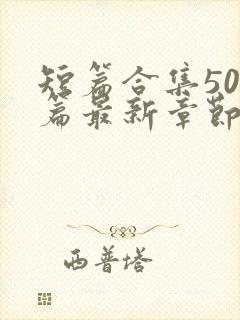 短篇合集50
篇最新章節
西普塔